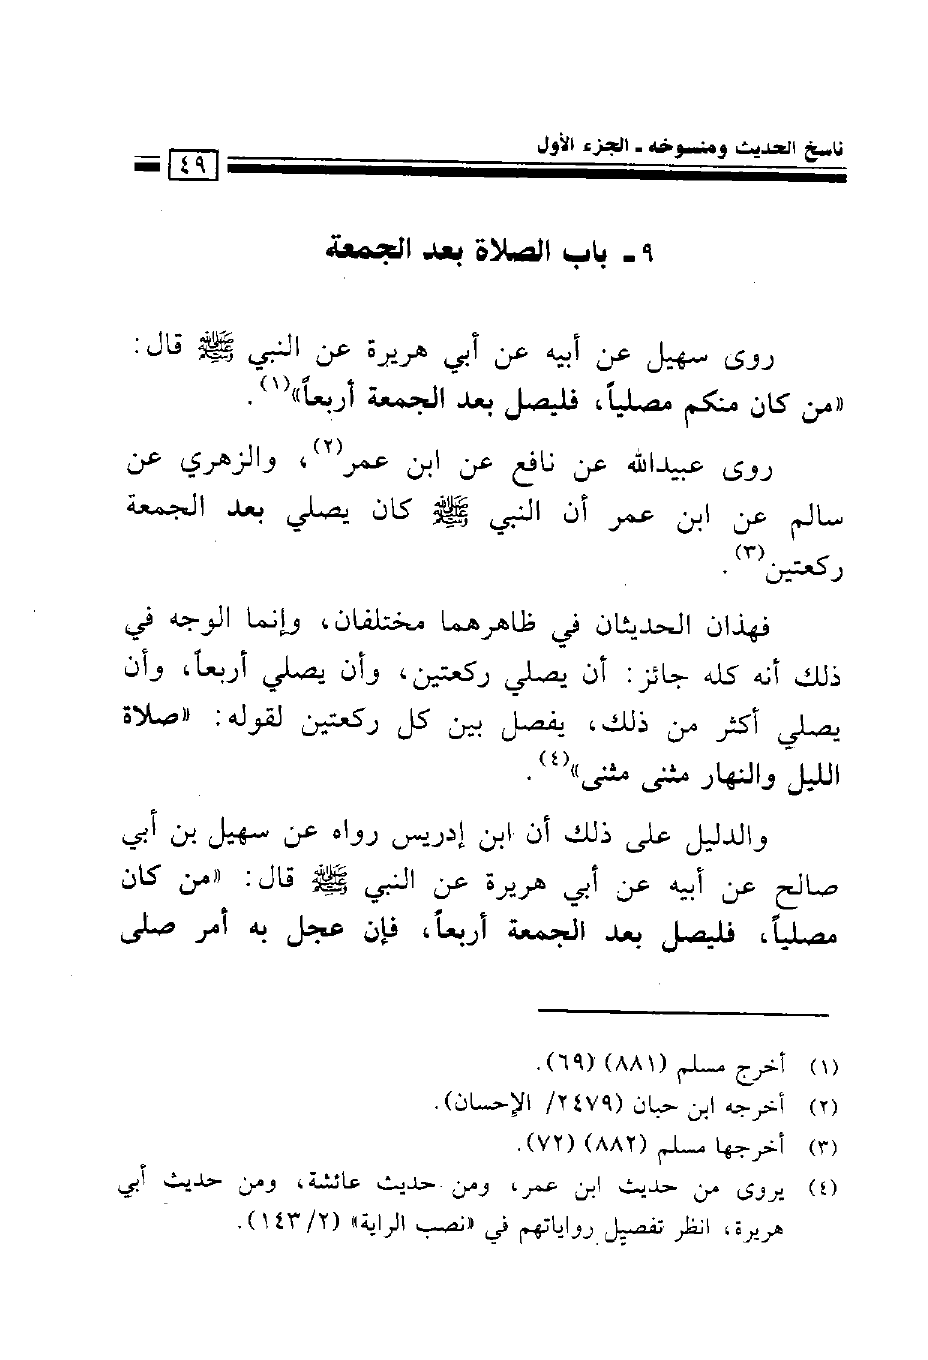 ناسخ الحديث ومنسوخه ـ الجزء الأول
٤٩
٩ ـ باب الصلاة بعد الجمعة
روى سهيل عن أبيه عن أبي هريرة عن النبي ﷺ قال:
«من كان منكم مصلياً، فليصل بعد الجمعة أربعاً»(١).
روى عبيدالله عن نافع عن ابن عمر(٢)، والزهري عن
سالم عن ابن عمر أن النبي ﷺ كان يصلي بعد الجمعة
ركعتين(٣).
فهذان الحديثان في ظاهرهما مختلفان، وإنما الوجه في
ذلك أنه كله جائز: أن يصلي ركعتين، وأن يصلي أربعاً، وأن
يصلي أكثر من ذلك، يفصل بين كل ركعتين لقوله: «صلاة
الليل والنهار مثنى مثنى»(٤).
والدليل على ذلك أن ابن إدريس رواه عن سهيل بن أبي
صالح عن أبيه عن أبي هريرة عن النبي ﷺ قال: «من كان
مصلياً، فليصل بعد الجمعة أربعاً، فإن عجل به أمر صلى
(١) أخرج مسلم (٨٨١) (٦٩).
(٢) أخرجه ابن حبان (٢٤٧٩/ الإحسان).
(٣) أخرجها مسلم (٨٨٢) (٧٢).
(٤) يروى من حديث ابن عمر، ومن حديث عائشة، ومن حديث أبي
هريرة، انظر تفصيل رواياتهم في «نصب الراية» (١٤٣/٢).